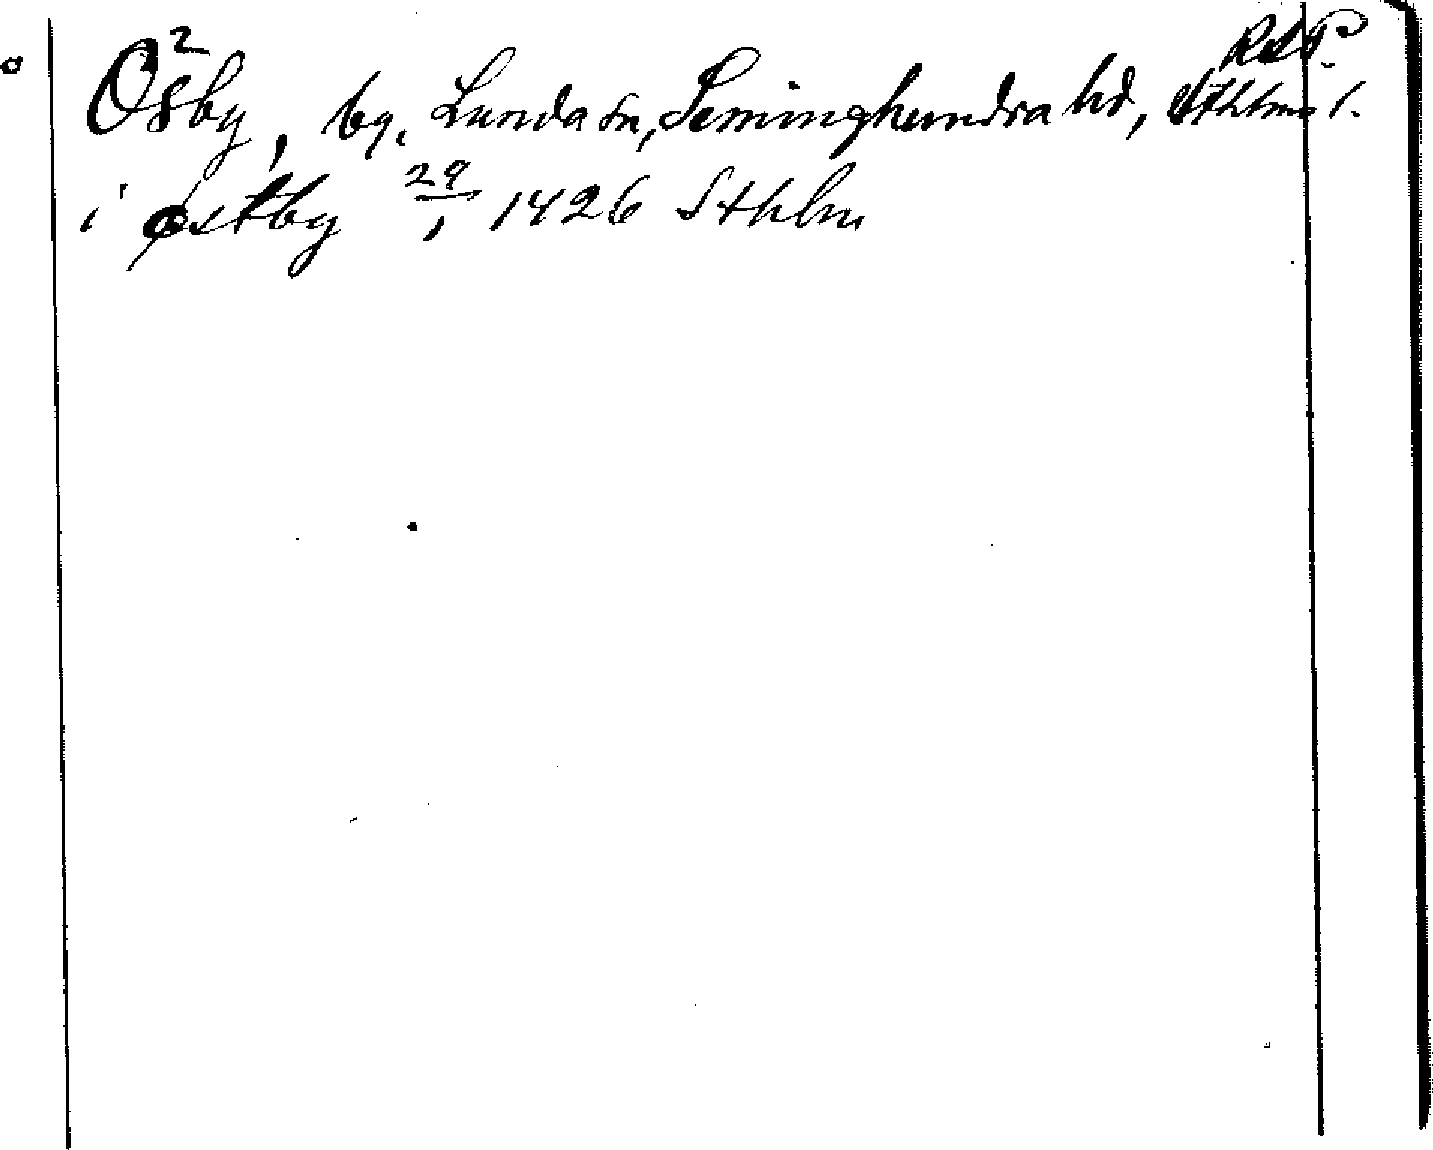 Ösby, by, Lunda sn, Seminghundra hd, Sthlms l.
i østby 29/1 1426 Sthlm